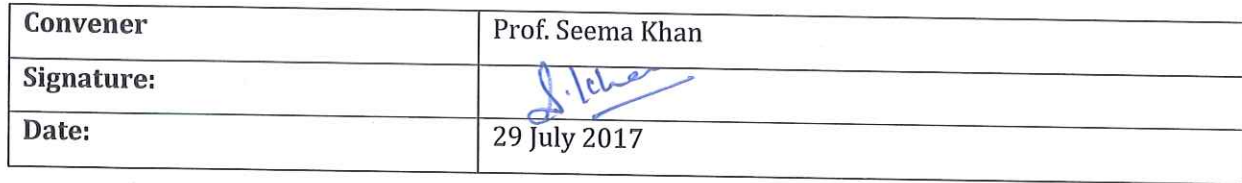 Convener Prof. Seema Khan
Signature: S. Khan
Date: 29 July 2017